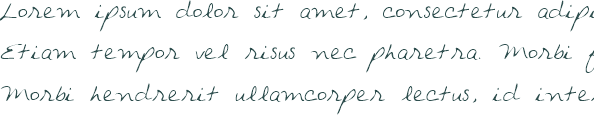 Lorem ipsum dolor sit amet, consectetur adipi
Etiam tempor vel risus nec pharetra. Morbi
Morbi hendrerit ullamcorper lectus, id inte